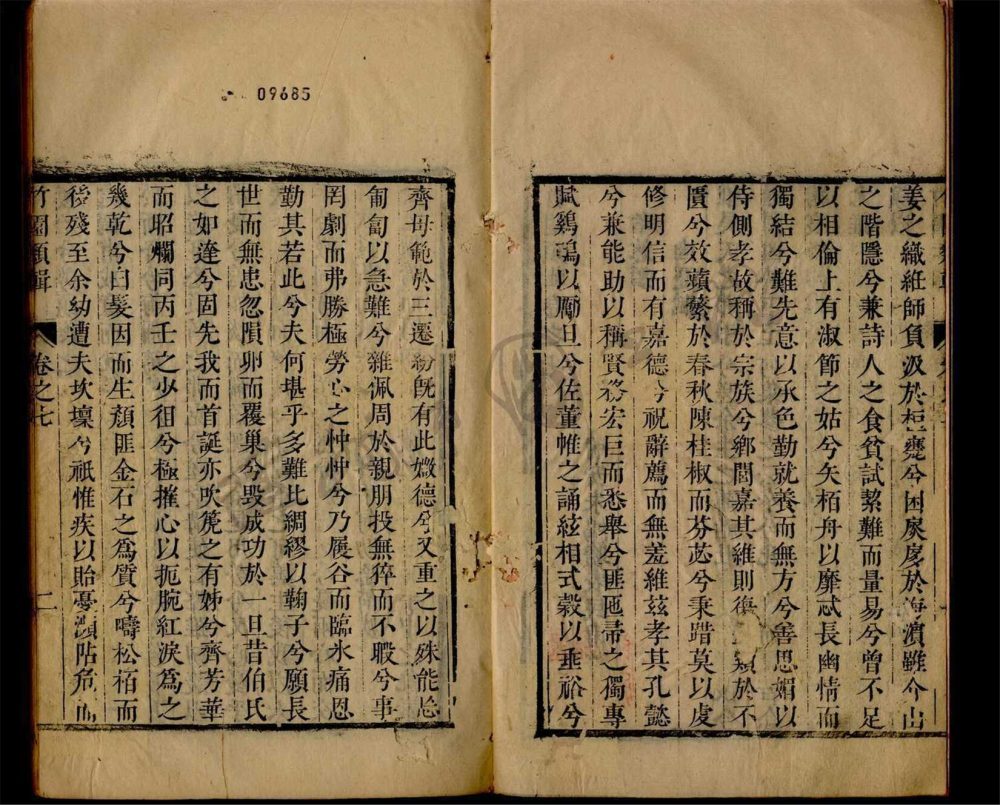 姜之織紝師負汲於桓甕兮困扊扅於海濱雖今古
之階隱兮兼詩人之食貧試絜難而量易兮曾不足
以相倫上有淑節之姑兮矢栢舟以靡忒長幽情而
獨結兮難先意以承色勤就養而無方兮善思媚以
侍側孝故稱於宗族兮鄉閭嘉其維則復 於不
匱兮效蘋蘩於春秋陳桂椒而芬苾兮秉踖莫以虔
修明信而有嘉德兮祝辭薦而無羞維玆孝其孔懿
兮兼能助以稱賢務宏巨而悉舉兮匪匜帚之獨專
賦鷄鳴以勵旦兮佐董帷之誦絃相式穀以垂裕兮
齊母範於三遷紛旣有此媺德兮又重之以殊能
匍匐以急難兮雜佩周於親朋投無猝而不暇兮事
罔劇而弗勝極勞心之忡忡兮乃履谷而臨氷痛恩
勤其若此兮夫何堪乎多難比綢繆以鞠子兮願長
世而無患忽隕卵而覆巢兮毀成功於一旦昔伯氏
之如達兮固先我而首誕亦吹箎之有姊兮齊芳華
而昭爛同丙壬之少徂兮極摧心以扼腕紅淚爲之
幾乾兮白髮因而生顏匪金石之爲質兮嚋松栢而
後殘至余幼遭夫坎壈兮祇惟疾以貽憂瀕阽危
竹園類輯 卷之七 二
09685